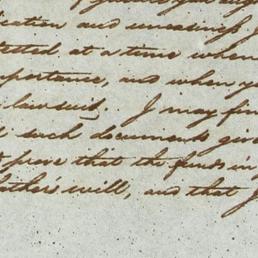 cation and uneasiness
at a time when
portance, and when
lawsuit. I may fin
such documents giv
prove that the funds in
father's will, and that I